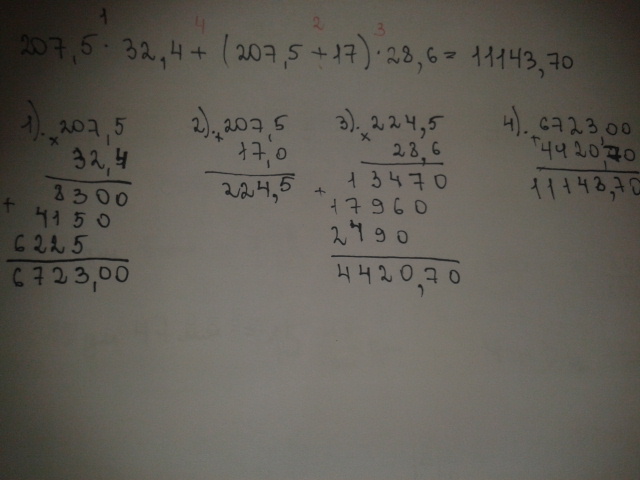 1 4 2 3
207,5 · 32,4 + (207,5 + 17) · 28,6 = 11143,70
1). 207,5 2). 207,5 3). 224,5 4). 6723,00
x 32,4 + 17,0 x 28,6 + 4420,70
8300 224,5 13470 11143,70
+ 4150 + 17960
6225 2490
6723,00 4420,70